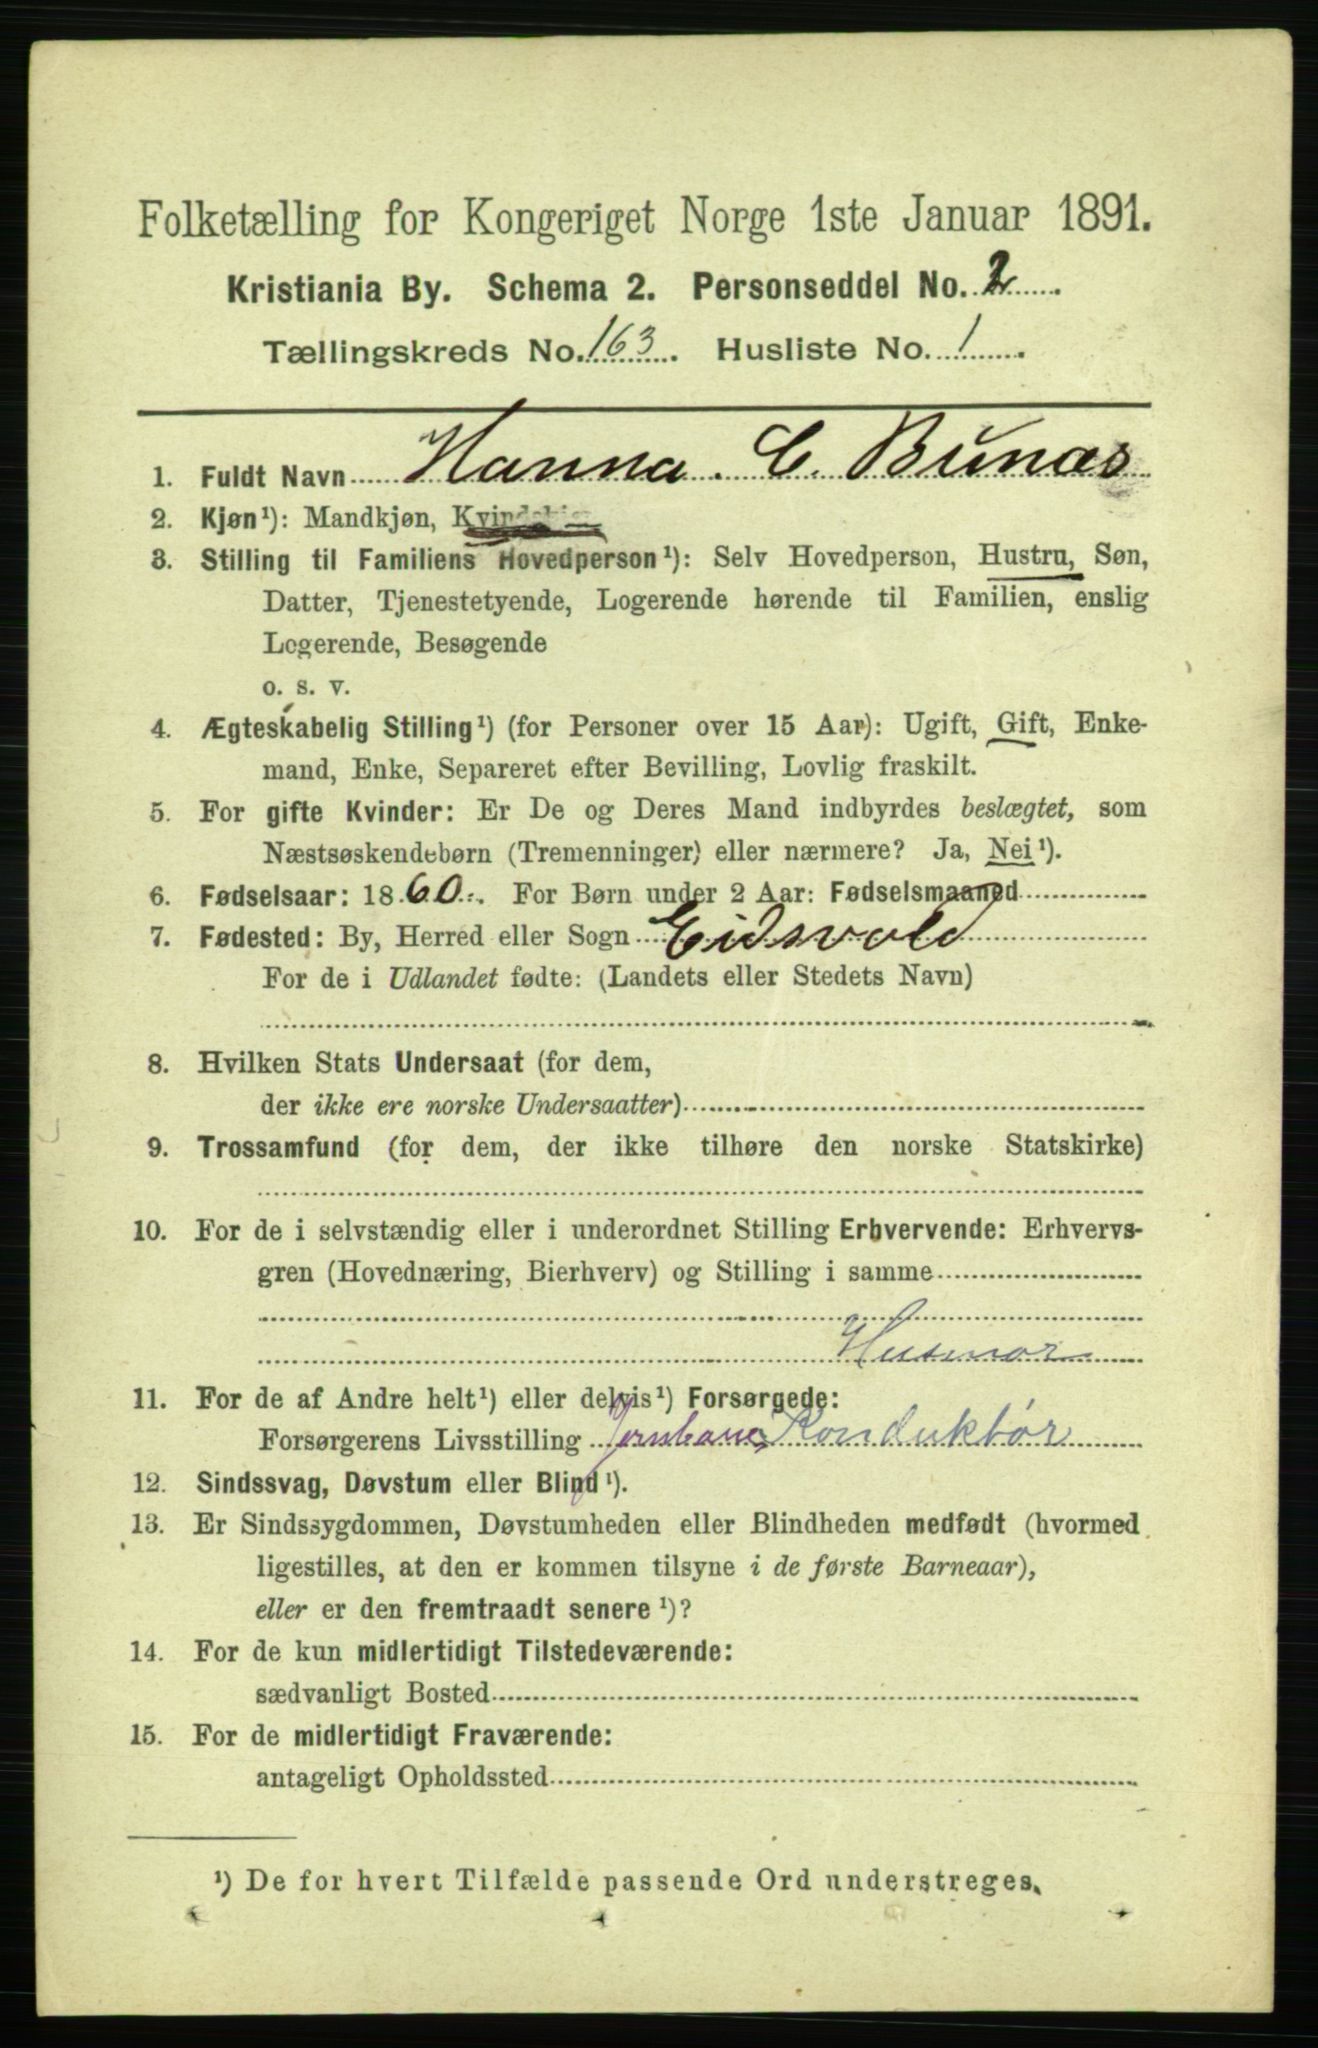 Folketælling for Kongeriget Norge 1ste Januar 1891.
Kristiania By. Schema 2. Personseddel No. 2
Tællingskreds No. 163. Husliste No. 1
1. Fuldt Navn Hanna. C. Bunæs
2. Kjøn¹): Mandkjøn, Kvindekjøn
3. Stilling til Familiens Hovedperson¹): Selv Hovedperson, Hustru, Søn,
Datter, Tjenestetyende, Logerende hørende til Familien, enslig
Logerende, Besøgende
o. s. v.
4. Ægteskabelig Stilling¹) (for Personer over 15 Aar): Ugift, Gift, Enke-
mand, Enke, Separeret efter Bevilling, Lovlig fraskilt.
5. For gifte Kvinder: Er De og Deres Mand indbyrdes beslægtet, som
Næstsøskendebørn (Tremenninger) eller nærmere? Ja, Nei¹).
6. Fødselsaar: 1860. For Børn under 2 Aar: Fødselsmaaned
7. Fødested: By, Herred eller Sogn Eidsvold
For de i Udlandet fødte: (Landets eller Stedets Navn)
8. Hvilken Stats Undersaat (for dem,
der ikke ere norske Undersaatter)
9. Trossamfund (for dem, der ikke tilhøre den norske Statskirke)
10. For de i selvstændig eller i underordnet Stilling Erhvervende: Erhvervs-
gren (Hovednæring, Bierhverv) og Stilling i samme
Husmor
11. For de af Andre helt¹) eller delvis¹) Forsørgede:
Forsørgerens Livsstilling Jernbane Konduktör
12. Sindssvag, Døvstum eller Blind¹).
13. Er Sindssygdommen, Døvstumheden eller Blindheden medfødt (hvormed
ligestilles, at den er kommen tilsyne i de første Barneaar),
eller er den fremtraadt senere¹)?
14. For de kun midlertidigt Tilstedeværende:
sædvanligt Bosted
15. For de midlertidigt Fraværende:
antageligt Opholdssted
¹) De for hvert Tilfælde passende Ord understreges.